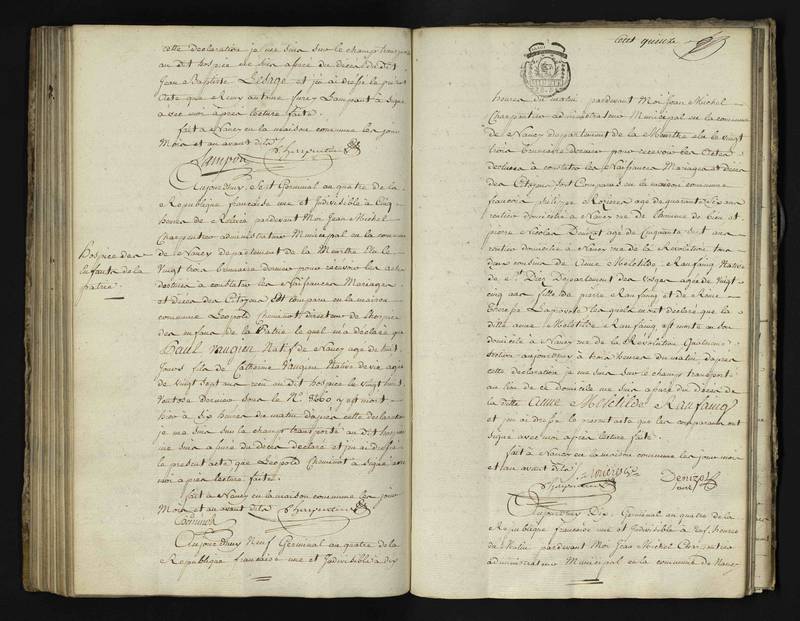 cette declaration je me suis sur le champ transporté
au dit hospice me suis assuré du deces du dit
Jean Baptiste Lesage et j'ai dressé le présent
Acte que Remy antoine furcy Lampant a signé
avec moi après lecture faite.
fait à Nancy en la maison commune les jour
Mois et an avant dits
Charpentier
Aujourd'huy Sept Germinal an quatre de la
Republique française une et Indivisible à Cinq
heures de Relevée pardevant Moi Jean Michel
Charpentier administrateur Municipal en la commune
de Nancy departement de la Meurthe Elu le
Vingt trois brumaire dernier pour recevoir les actes
destinés à constater les Naissances Mariages
et deces des Citoyens Est comparu en la maison
commune Léopold Cheminot directeur de l'hospice
des enfans de la Patrie lequel m'a déclaré que
Paul Vaugien Natif de Nancy agé de huit
Jours fils de Catherine Vaugien Native de vic agée
de vingt sept ans reçu au dit hospice le vingt huit
Ventose dernier sous le N.° 8660 y est mort
hier à Six heures du matin d'après cette declaration
je me suis sur le champt transporté au dit hospice
me suis assuré du deces declaré et j'ai dressé
le present acte que Léopold Cheminot a signé avec
moi après lecture faite.
fait à Nancy en la maison commune les jour
Mois et an avant dits
Charpentier
Cheminot
Aujourd'huy Neuf Germinal an quatre de la
Republique française une et Indivisible à dix
Hospice des
enfants de la
patrie
Cent quinze
heures du matin pardevant Moi Jean Michel
Charpentier administrateur Municipal en la commune
de Nancy departement de la Meurthe elu le vingt
trois brumaire dernier pour recevoir les Actes
destinés à constater les Naissances Mariages et deces
des Citoyens Sont Comparus en la maison commune
francois philippe agé de quarante ans
rentier domicilié à Nancy rue de
pierre Nicolas Denizot agé de Cinquante huit ans
rentier domicilié à Nancy rue de la Revolution tous
deux cousins de Anne Melchilde Ranfaing Native
de S.t Diez Departement des Vosges agée de vingt
cinq ans fille de pierre Ranfaing et de
Lapovote lesquels m'ont declaré que la
ditte anne Melchilde Ranfaing est morte en son
domicile à Nancy rue de la Revolution quatrieme
section aujourd'huy à trois heures du matin d'après
cette declaration je me suis sur le champ transporté
au lieu de ce domicile me suis assuré du deces de
la ditte Anne Melchilde Ranfaing
et j'ai dressé le present acte que les comparans ont
signé avec moi après lecture faite.
fait à Nancy en la maison commune les jour mois
et an avant dits
Charpentier
Denizot
Aujourd'huy Dix Germinal an quatre de la
Republique française une et Indivisible à neuf heures
du Matin pardevant Moi Jean Michel Charpentier
administrateur Municipal en la commune de Nancy